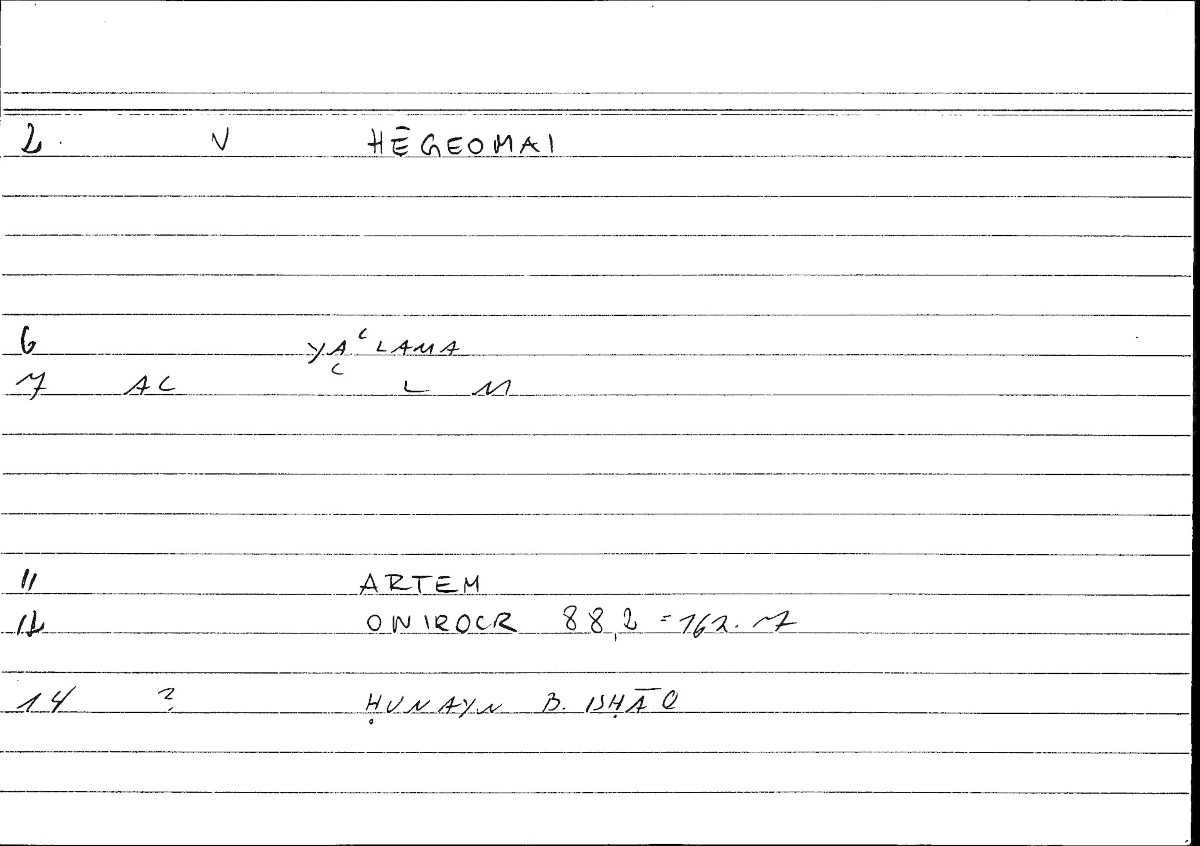 2. V HĒGEOMAI
6 YAʿLAMA
7 AC ʿ L M
11 ARTEM
12 ONIROCR 88,2 = 162.17
14 ? ḤUNAYN B. ISḤĀQ